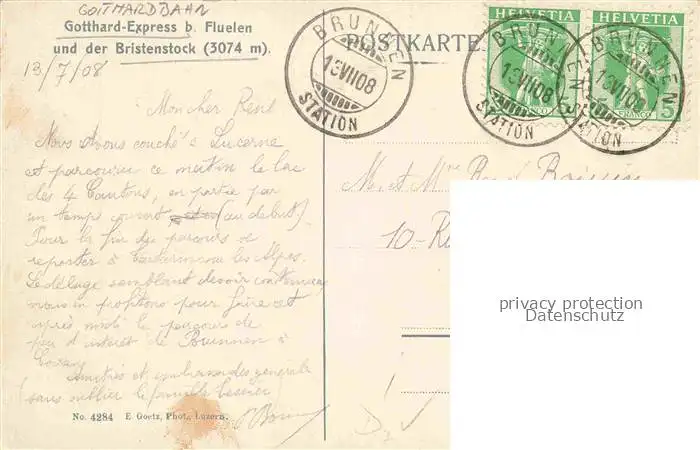 GOTTHARDBAHN
Gotthard-Express b. Fluelen
und der Bristenstock (3074 m).
13/7/08
POSTKARTE
HELVETIA HELVETIA
BRUNNEN
13VII08
STATION
BRUNNEN
13VII08
STATION
BRUNNEN
13VII08
STATION
FRANCO FRANCO 5
Mon cher René
Nous avons couché à Lucerne
et parcouru ce matin le lac
des 4 Cantons, en partie par
un temps couvert (au début).
Pour la fin du parcours se
reporter à Tartarin sur les Alpes.
Le déluge semblant devoir continuer
nous en profitons pour faire cet
après midi le parcours de
peu d'intéret de Brunnen à
Amitiés et embrassades générales
(sans oublier la famille
M. et Mme René
10 - R
privacy protection
Datenschutz
No. 4284 E Goetz, Phot., Luzern.